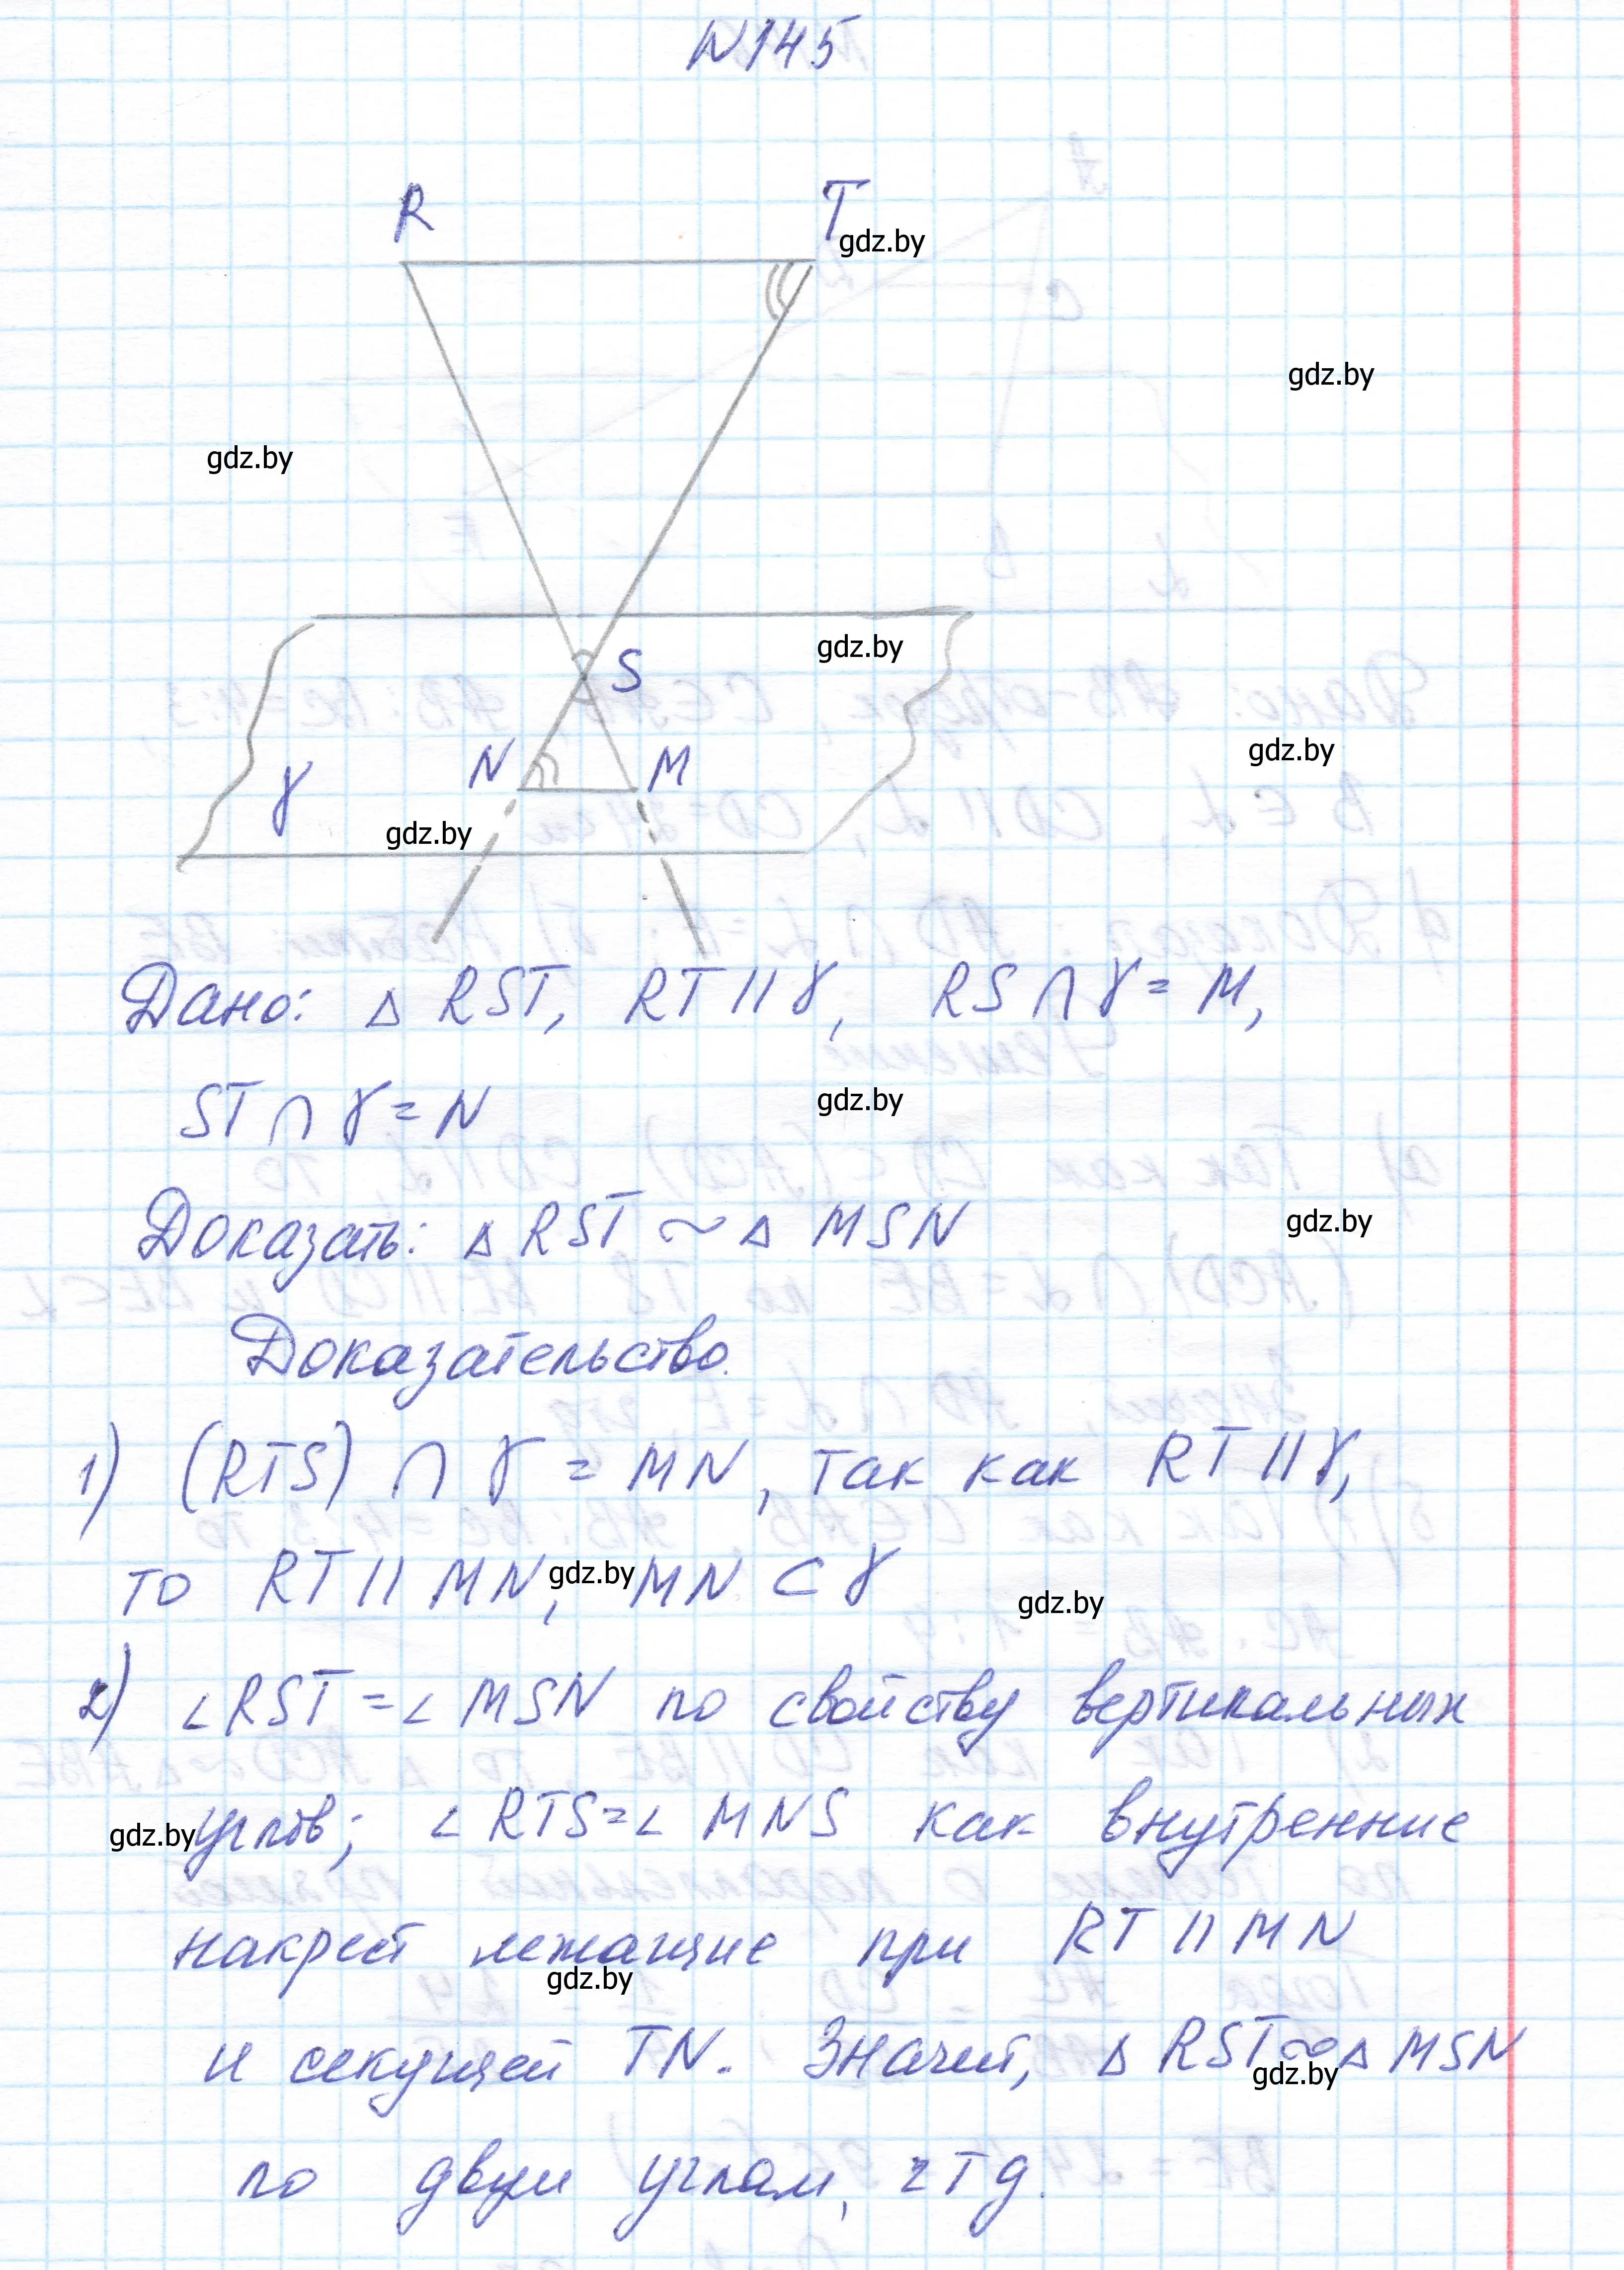 N145
R T
gdz.by
gdz.by
gdz.by
S
gdz.by
N M
gdz.by
γ
gdz.by
Дано: Δ RST, RT || γ, RS ∩ γ = M,
ST ∩ γ = N
gdz.by
Доказать: Δ RST ~ Δ MSN
gdz.by
Доказательство.
1) (RTS) ∩ γ = MN, так как RT || γ,
то RT || MN, MN ⊂ γ
gdz.by
gdz.by
2) ∠RST = ∠MSN по свойству вертикальных
углов; ∠RTS = ∠MNS как внутренние
gdz.by
накрест лежащие при RT || MN
gdz.by
и секущей TN. Значит, Δ RST ~ Δ MSN
gdz.by
по двум углам, чтд.